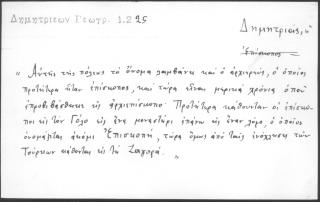 Δημητριεων Γεωγρ. 1.225
Δημητριάς, ἡ
Ἐπίσκοπος
" Αὐτῆς τῆς πόλεως τὸ ὄνομα λαμβάνει καὶ ὁ ἀρχιερεὺς, ὁ ὁποῖος
προτήτερα ἦταν ἐπίσκοπος, καὶ τώρα εἶναι μερικὰ χρόνια ὁποῦ
ἐπροβιβάσθηκε εἰς ἀρχιεπίσκοπο· Προτήτερα κάθουνταν οἱ ἐπίσκο-
ποι εἰς τὸν Γόλο εἰς ἕνα μοναστήρι ἐπάνω εἰς ἕναν λόφο, ὁ ὁποῖος
ὀνομάζεται ἀκόμι Ἐπισκοπή, τώρα ὅμως ἀπὸ ταῖς ἐνόχλησες τῶν
Τούρκων κάθονται εἰς τὰ Ζαγορά. "